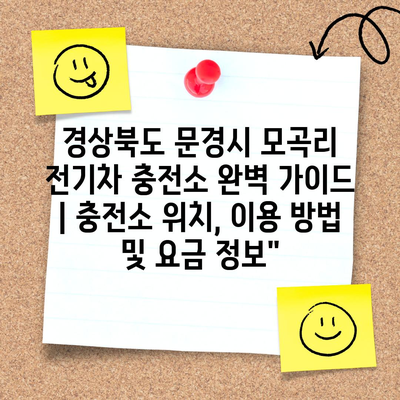 경상북도 문경시 모곡리
전기차 충전소 완벽 가이드
| 충전소 위치, 이용 방법
및 요금 정보"